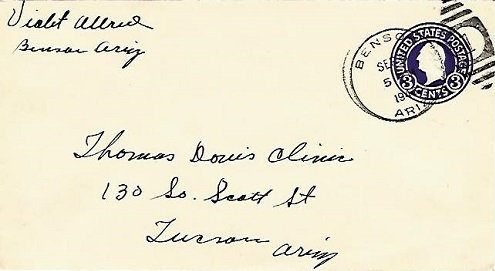 Violet Allred
Benson Ariz
BENSON
SE
5
19
ARIZ
UNITED STATES POSTAGE
3 CENTS 3
Thomas Davis Clinic
130 So. Scott St
Tucson Ariz